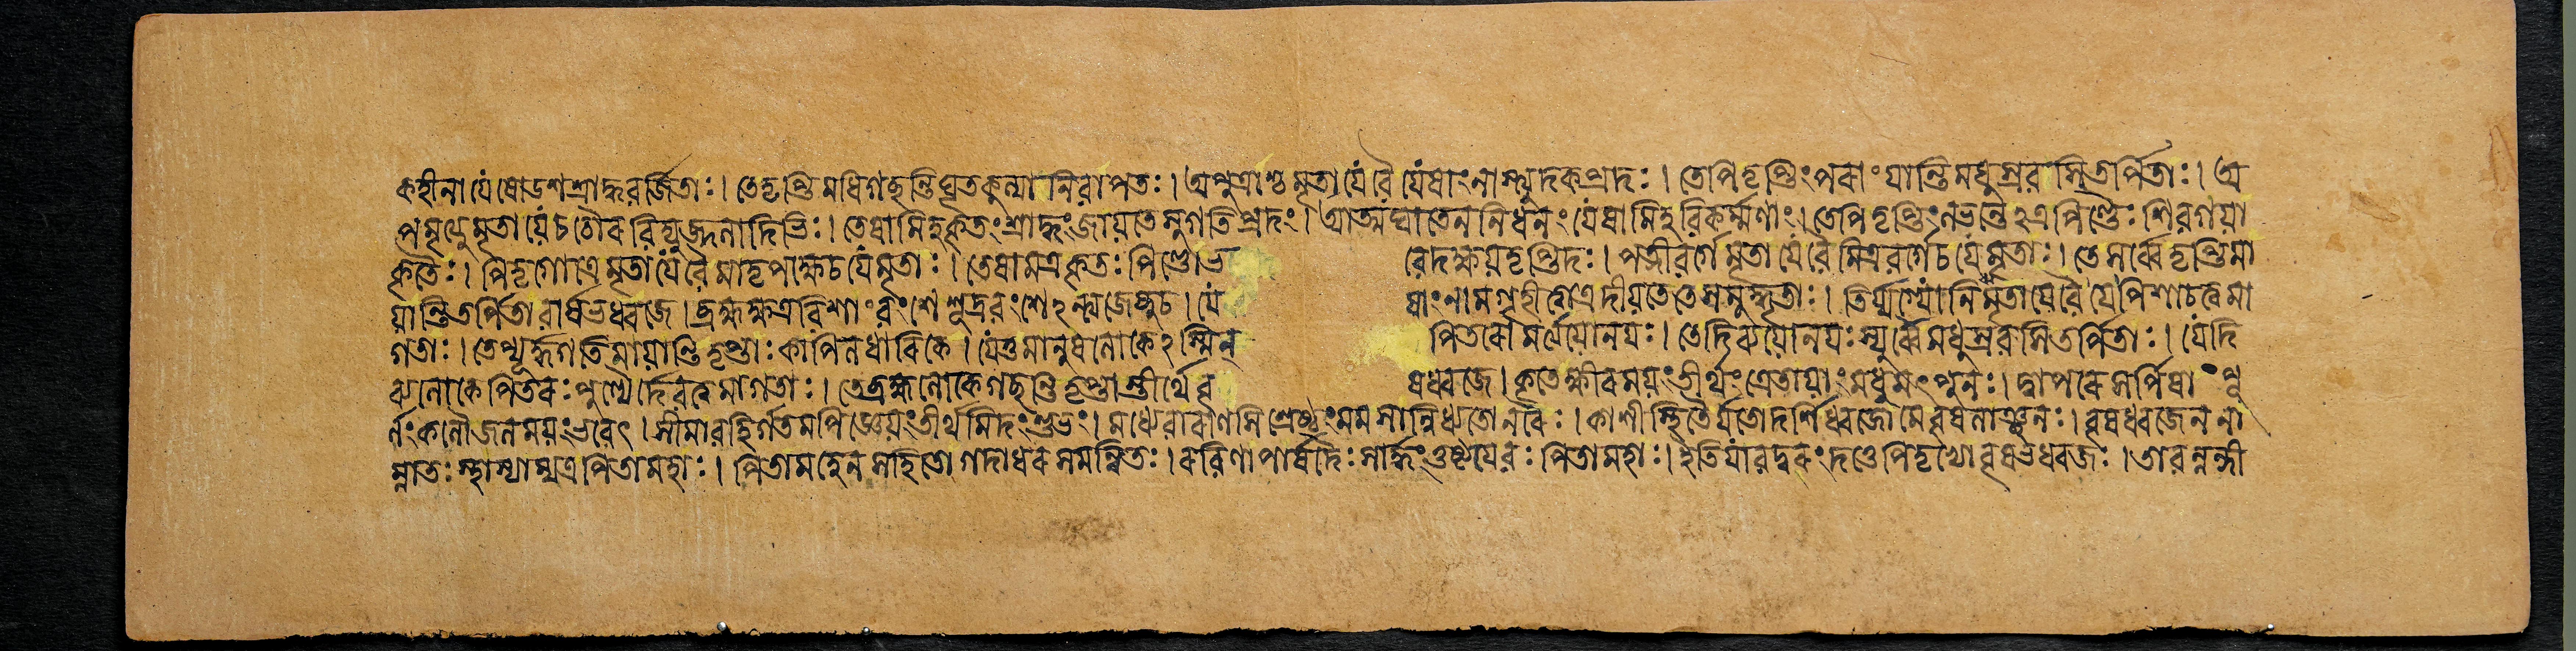 কহীনা যে ষোডশশ্রাদ্ধবর্জিতাঃ। তে তৃপ্তিমধিগচ্ছন্তি ঘৃতকুল্যা নিবাপতঃ। অপুত্রাশ্চ মৃতা যে বৈ যেষাং নাস্ত্যুদকপ্রদঃ। তেপি তৃপ্তিং পরাং যান্তি মধুস্রবসি তর্পিতাঃ। অ
পমৃত্যুমৃতা যে চ চৌরবিদ্যুজ্জলাদিভিঃ। তেষামিহ কৃতং শ্রাদ্ধং জায়তে সুগতিপ্রদং। আত্মঘাতেন নিধনং যেষামিহ বিকর্ম্মণাং। তেপি তৃপ্তিং লভন্তেঽত্র পিণ্ডৈঃ শিবগয়া
কৃতৈঃ। পিতৃগোত্রে মৃতা যে বৈ মাতৃপক্ষে চ যে মৃতাঃ। তেষামত্র কৃতঃ পিণ্ডো ভ বেদক্ষয়তৃপ্তিদঃ। পত্নীবর্গে মৃতা যে বৈ মিত্রবর্গে চ যে মৃতাঃ। তে সর্ব্বে তৃপ্তিমা
যান্তি তর্পিতা বার্ষভধ্বজে। ব্রহ্মক্ষত্রবিশাং বংশে শূদ্রবংশেঽন্ত্যজেষু চ। যে ষাং নাম গৃহীত্বাত্র দীয়তে তে সমুদ্ধৃতাঃ। তির্য্যগ্যোনিমৃতা যে বৈ যে পিশাচত্বমা
গতাঃ। তেপ্যূর্দ্ধগতিমায়ান্তি তৃপ্তাঃ কাপিলধারিকে। যে তু মানুষলোকেঽস্মিন্ পিতরো মর্ত্যযোনয়ঃ। তে দিব্যযোনয়ঃ স্যুর্ব্বৈ মধুস্রবসি তর্পিতাঃ। যে দি
ব্যলোকে পিতরঃ পুণ্যৈর্দেবত্বমাগতাঃ। তে ব্রহ্মলোকে গচ্ছন্তি তৃপ্তাস্তীর্থে বৃ ষধ্বজে। কৃতে ক্ষীরময়ং তীর্থং ত্রেতায়াং মধুমৎ পুনঃ। দ্বাপরে সর্পিষা পূ
র্ণং কলৌ জলময়ং ভবেৎ। সীমাবহির্গতমপি জ্ঞেয়ং তীর্থমিদং শুভং। মধ্যে বারাণসি শ্রেষ্ঠং মম সান্নিধ্যতো নরৈঃ। কাশীস্থিতৈর্যতোদর্শি ধ্বজো মে বৃষলাঞ্ছনঃ। বৃষধ্বজেন না
ম্নাতঃ স্থাস্যাম্যত্র পিতামহাঃ। পিতামহেন সহিতো গদাধরসমন্বিতঃ। রবিণা পার্ষদৈঃ সার্দ্ধং তুষ্টয়ে বঃ পিতামহাঃ। ইতি যাবদ্বরং দত্তে পিতৃভ্যো বৃষভধ্বজঃ। তাবন্নন্দী